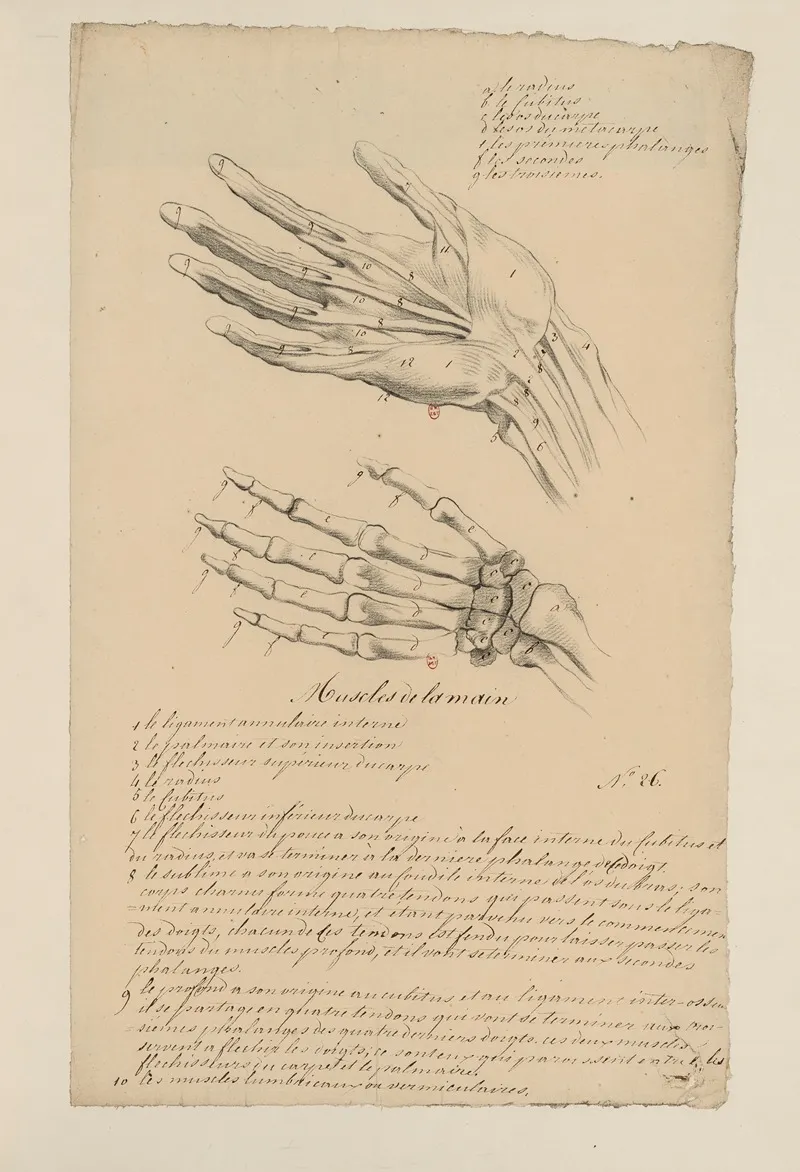 a le radius
b. le Cubitus
c les os du carpe
d les os du métacarpe
e les premieres phalanges
f les secondes
g les troisiemes.
Muscles de la main
1 le ligament annulaire interne
2 le palmaire et son insertion
3 le flechisseur supérieur du carpe
4 le radius
N.º 26.
5 le Cubitus
6 le flechisseur inférieur du carpe
7 le flechisseur du pouce a son origine à la face interne du Cubitus et
du radius, et va se terminer à la derniere phalange de ce doigt.
8 le sublime a son origine au condile interne de l'os du bras; son
corps charnu forme quatre tendons qui passent sous le liga-
=ment annulaire interne, et etant parvenu vers le commencemen
des doigts, chacun de ces tendons est fendu pour laisser passer les
tendons du muscles profond, et il vont se terminer aux secondes
phalanges.
9 le profond a son origine au cubitus, et au ligament inter-osseu
il se partage en quatre tendons qui vont se terminer aux troi-
=siemes phalanges des quatre derniers doigts. ces deux muscles
servent a flechir les doigts; ce sont eux qui paroissent entre les
flechisseurs du carpe et le palmaire.
10 les muscles lumbricaux ou vermiculaires.